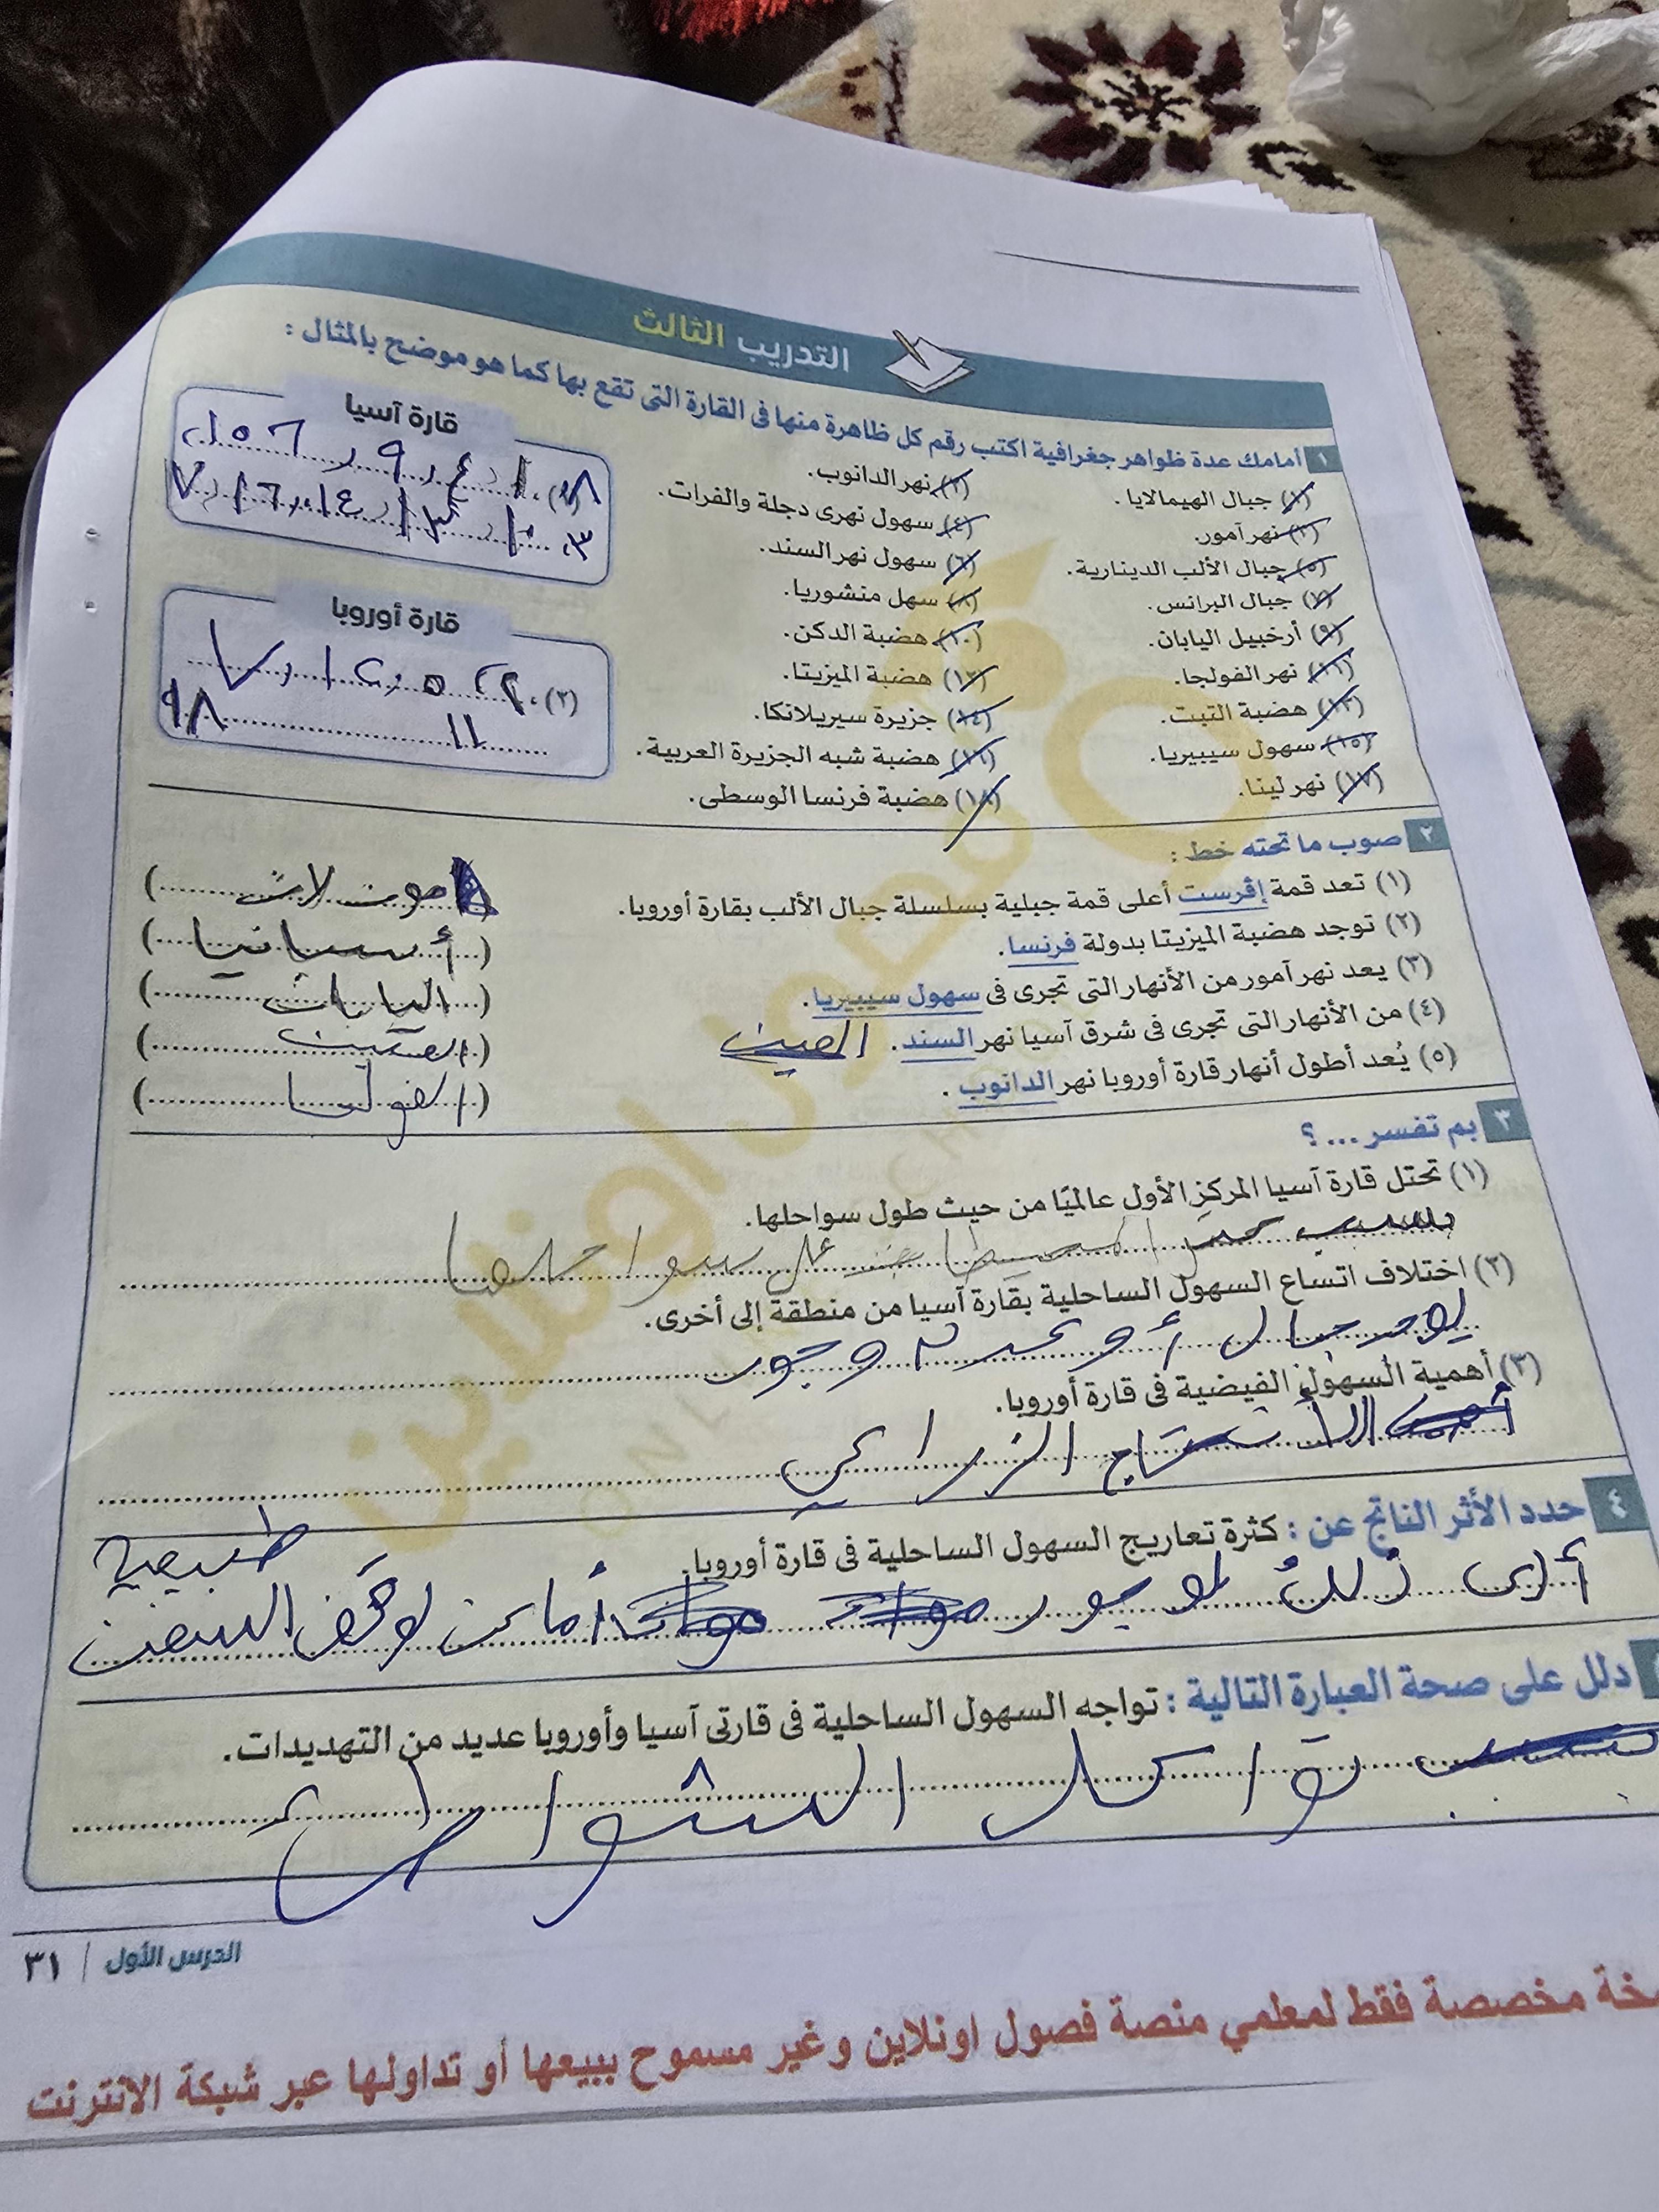 التدريب الثالث
١ أمامك عدة ظواهر جغرافية اكتب رقم كل ظاهرة منها فى القارة التى تقع بها كما هو موضح بالمثال :
(١) جبال الهيمالايا.
(٢) نهر الدانوب.
(٣) نهر آمور.
(٤) سهول نهرى دجلة والفرات.
(٥) جبال الألب الدينارية.
(٦) سهول نهر السند.
(٧) جبال البرانس.
(٨) سهل منشوريا.
(٩) أرخبيل اليابان.
(١٠) هضبة الدكن.
(١١) نهر الفولجا.
(١٢) هضبة الميزيتا.
(١٣) هضبة التبت.
(١٤) جزيرة سيريلانكا.
(١٥) سهول سيبيريا.
(١٦) هضبة شبه الجزيرة العربية.
(١٧) نهر لينا.
(١٨) هضبة فرنسا الوسطى.
قارة آسيا
قارة أوروبا
(٢)
١١
٢ صوب ما تحته خط :
(١) تعد قمة إڤرست أعلى قمة جبلية بسلسلة جبال الألب بقارة أوروبا. (
(٢) توجد هضبة الميزيتا بدولة فرنسا. (أسبانيا)
(٣) يعد نهر آمور من الأنهار التى تجرى فى سهول سيبيريا. (
(٤) من الأنهار التى تجرى فى شرق آسيا نهر السند. الصين (
(٥) يُعد أطول أنهار قارة أوروبا نهر الدانوب. (
٣ بم تفسر ... ؟
(١) تحتل قارة آسيا المركز الأول عالميًا من حيث طول سواحلها.
بسبب المحيطات على سواحلها
(٢) اختلاف اتساع السهول الساحلية بقارة آسيا من منطقة إلى أخرى.
جبال أو عدم وجود
(٣) أهمية السهول الفيضية فى قارة أوروبا.
الزراعى
٤ حدد الأثر الناتج عن : كثرة تعاريج السهول الساحلية فى قارة أوروبا.
أدى ذلك لوجود أماكن لوقف السفن
طبيعية
دلل على صحة العبارة التالية : تواجه السهول الساحلية فى قارتى آسيا وأوروبا عديد من التهديدات.
تواكل الشواطئ
الدرس الأول / ٣١
مخصصة فقط لمعلمي منصة فصول اونلاين وغير مسموح ببيعها أو تداولها عبر شبكة الانترنت
فصول اونلاين